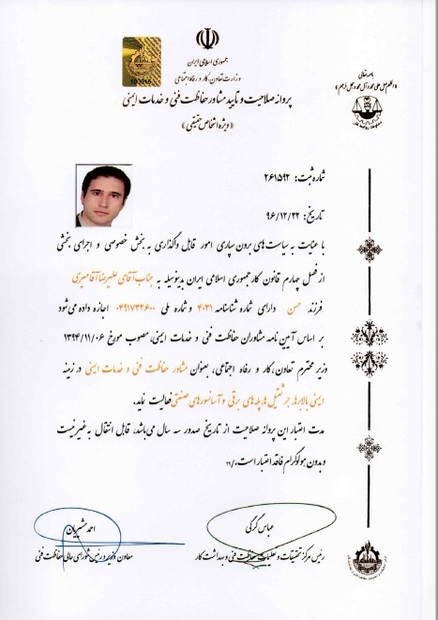 باسمه تعالی
«اللهم صل علی محمد و آل محمد و عجل فرجهم»
جمهوری اسلامی ایران
وزارت تعاون، کار و رفاه اجتماعی
پروانه صلاحیت و تأیید مشاور حفاظت فنی و خدمات ایمنی
«ویژه اشخاص حقیقی»
شماره ثبت: ۲۶۱۵۹۲
تاریخ: ۹۶/۱۲/۲۲
با عنایت به سیاست‌های برون سپاری امور قابل واگذاری به بخش خصوصی و اجرای بخشی
از فصل چهارم قانون کار جمهوری اسلامی ایران بدینوسیله به جناب آقای علیرضا آقامیری
فرزند حسن دارای شماره شناسنامه ۴۰۳۱ و شماره ملی ۰۴۹۱۷۳۲۶۰۰ اجازه داده می‌شود
بر اساس آیین نامه مشاوران حفاظت فنی و خدمات ایمنی، مصوب مورخ ۱۳۹۴/۱۱/۰۶
وزیر محترم تعاون، کار و رفاه اجتماعی، بعنوان مشاور حفاظت فنی و خدمات ایمنی در زمینه
ایمنی بالابرها، جرثقیل‌ها، پله‌های برقی و آسانسورهای صنعتی فعالیت نماید.
مدت اعتبار این پروانه صلاحیت از تاریخ صدور سه سال می‌باشد، قابل انتقال به غیر نیست
و بدون هولوگرام فاقد اعتبار است.
عباس گرگی
رئیس مرکز تحقیقات و تعلیمات حفاظت فنی و بهداشت کار
احمد مشیریان
معاون وزیر و رئیس شورای عالی حفاظت فنی